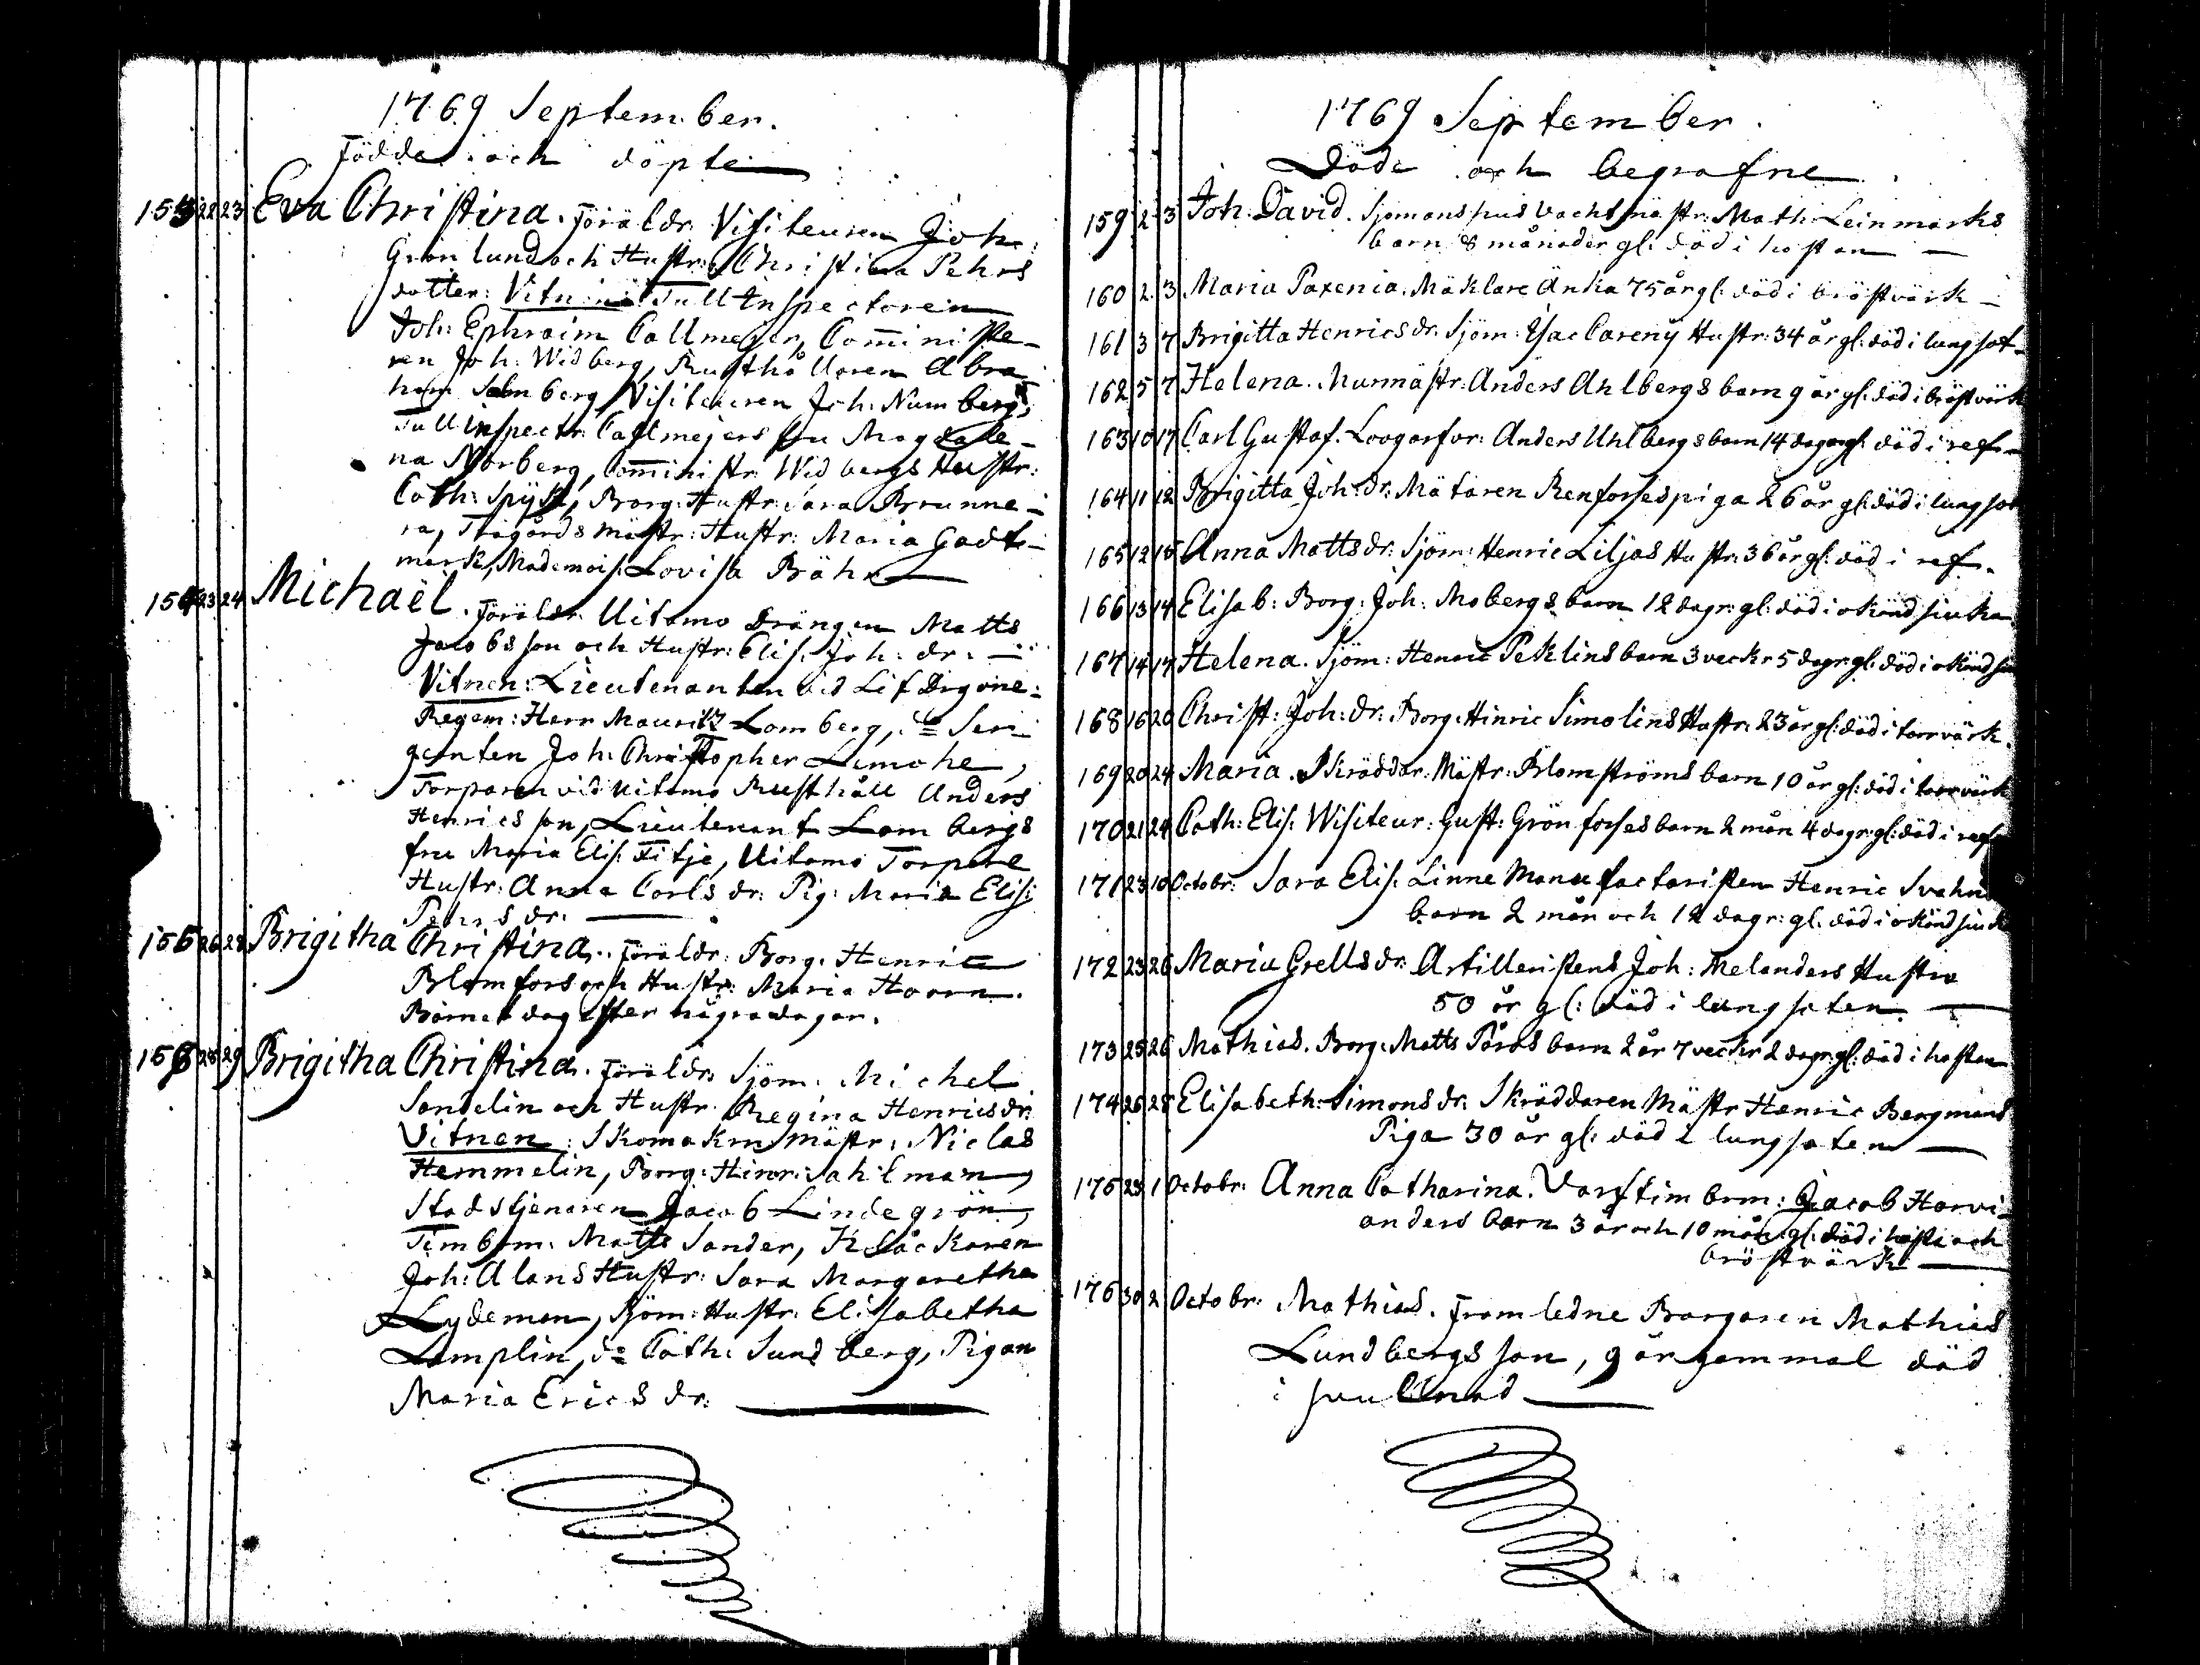 1769 September.
Födde och döpte
153 22 23 Eva Christina. Föräldr. Visiteuren Joh:
Grönlund och Hustr: Christina Pehrs
dotter: Vitnen Tull Inspectoren
Joh: Ephraim Callmeyer, Com̄iniste-
ren Joh. Widberg, Rusthållaren Abra-
ham Sahnberg, Visiteuren Joh. Numberg,
Tull inspectr. Callmejers fru Magdale-
na Norberg, Com̄inistr. Widbergs Hustr:
Cath: Spijk, Borg: Hustr: Sara Brunne-
ra, Trägårds mästr: Hustr: Maria Gadt-
mark, Mademois. Lovisa Bähr
154 23 24 Michaël. Föräldr. Uitamo Drängen Matts
Jacobsson och Hustr: Elis. Joh: dr.
Vitnen: Lieutenanten vid Lif Drgone-
Regem: Herr Mauritz Lomberg, do Ser-
genten Joh. Christopher Limohe,
Torparen vid Uitamo Rusthåll Anders
Henricsson, Lieutenant Lombergs
fru Maria Elis. Fitje, Uitamo Torpare
Hustr: Anna Carls dr. Pig: Maria Elis:
Pehrs dr.
155 26 28 Brigitha Christina. Föräldr: Borg. Henric
Blomfors och Hustr: Maria Hoorn.
Barnet dog efter några dagar.
156 28 29 Brigitha Christina. Föräldr. Sjöm. Michel
Sandelin och Hustr. Regina Henricsdr.
Vitnen: Skomakrn mästr. Niclas
Hemmelin, Borg: Hinr: Sahlman,
Stadstjenaren Jacob Lindegrön,
Timbrm. Matts Sander, Klåckaren
Joh: Alans Hustr: Sara Margaretha
Lydeman, Sjöm: Hustr: Elisabetha
Lamplin, do Cath: Sundberg, Pigan
Maria Ericsdr.
1769 September.
Döde och begrafne
159 2 3 Joh: David. Sjömanshus Vachtmästr: Math: Leinmarks
barn 8 månader gl: död i hostan
160 2 3 Maria Paxenia. Mäklare Änka 75 år gl: död i bröstvärk
161 3 7 Brigitta Henricsdr. Sjöm: Isac Careny Hustr: 34 år gl: död i lungsot
162 5 7 Helena. Murmästr: Anders Ahlbergs barn 9 år gl: död i bröstvärk
163 10 17 Carl Gustaf. Loogarfor: Anders Uhlbergs barn 14 dagar gl: död i ref-
164 11 12 Brigitta Joh: dr: Mätaren Renforses piga 26 år gl: död i lungsot
165 12 15 Anna Matts dr: Sjöm: Henric Liljas Hustr: 36 år gl: död i ref.
166 13 14 Elisab: Borg: Joh: Mobergs barn 12 dagr: gl: död i okänd siuka
167 14 17 Helena. Sjöm: Henric Peklins barn 3 veckr 5 dagr: gl: död i okänd siu
168 16 20 Christ: Joh: dr: Borg: Hinric Simolins Hustr: 23 år gl: död i torrvärk.
169 20 24 Maria. Skräddar: Mästr: Blomströms barn 10 år gl: död i torrvärk
170 21 24 Cath: Elis: Wisiteur: Gust: Grönforses barn 2 mån 4 dagr: gl: död i ref
171 23 10 Octobr: Sara Elis: Linne Manufacturisten Henric Svahns
barn 2 mån och 12 dagr: gl. död i okänd siuk
172 23 26 Maria Grells dr: Artilleristens Joh: Melanders Hustru
50 år gl: död i lungsoten.
173 25 26 Mathias. Borg: Matts Påvos barn 2 år 7 veckr 2 dagr: gl: död i hostan
174 26 28 Elisabeth: Simonsdr: Skräddaren Mästr Henric Bergmans
Piga 30 år gl: död i lungsoten
175 29 1 Octobr: Anna Catharina. Varfstimbrm: Jacob Harvi-
anders barn 3 år och 10 mån: gl: död i hosta och
bröstvärk
176 30 2 Octobr: Mathias. Framledne Borgaren Mathias
Lundbergs son, 9 år gammal död
i svullnad